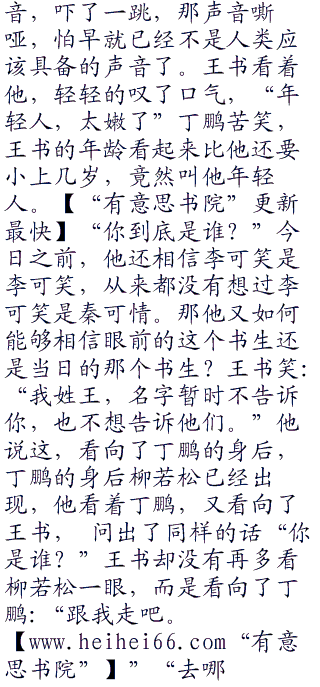 音，吓了一跳，那声音嘶
哑，怕早就已经不是人类应
该具备的声音了。王书看着
他，轻轻的叹了口气，“年
轻人，太嫩了”丁鹏苦笑，
王书的年龄看起来比他还要
小上几岁，竟然叫他年轻
人。【“有意思书院”更新
最快】“你到底是谁？”今
日之前，他还相信李可笑是
李可笑，从来都没有想过李
可笑是秦可情。那他又如何
能够相信眼前的这个书生还
是当日的那个书生？王书笑：
“我姓王，名字暂时不告诉
你，也不想告诉他们。”他
说这，看向了丁鹏的身后，
丁鹏的身后柳若松已经出
现，他看着丁鹏，又看向了
王书， 问出了同样的话“你
是谁？”王书却没有再多看
柳若松一眼，而是看向了丁
鹏：“跟我走吧。
【www.heihei66.com“有意
思书院”】”“去哪